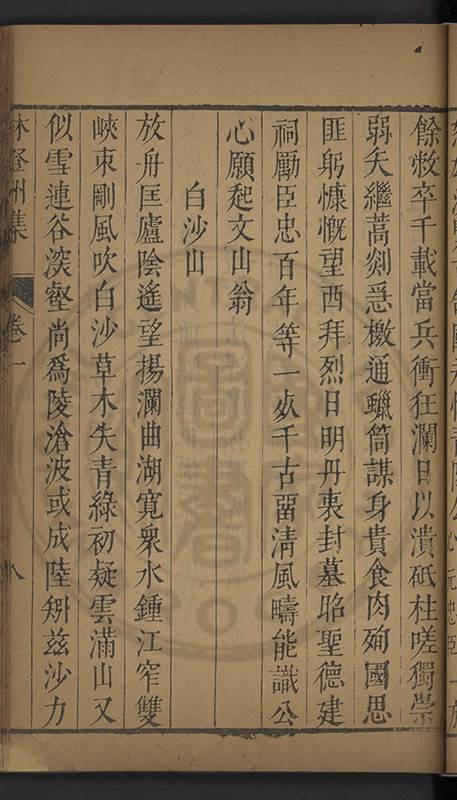 餘敕卒千載當兵衝狂瀾日以潰砥柱嗟獨崇
弱矢繼蒿剡惡檄通蠟筒謀身貴食肉殉國思
匪躬慷慨望西拜烈日明丹衷封墓昭聖德建
祠勵臣忠百年等一死千古畱清風疇能識公
心願起文山翁
白沙山
放舟匡廬陰遙望揚瀾曲湖寬衆水鍾江窄雙
峽束剛風吹白沙草木失青綠初疑雲滿山又
似雪連谷深壑尚爲陵滄波或成陸矧茲沙力
林登州集
卷一
八